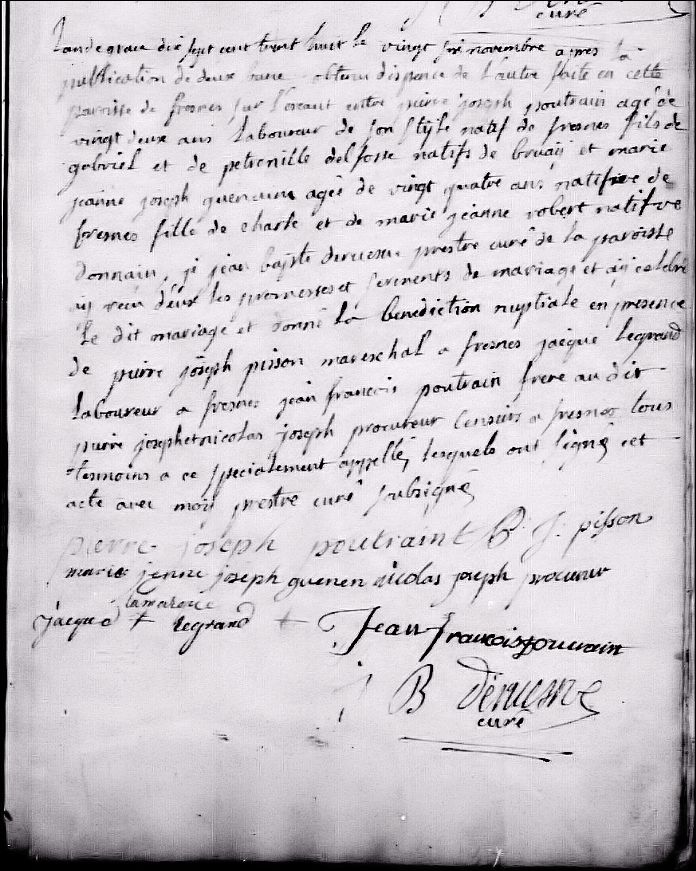 curé
Lan de grace dix sept cent trent huit le vingt six novembre apres la
publication de deux bans obtenu dispence de l'autre faite en cette
paroisse de fresnes sur l'escaut entre pierre joseph poutrain agé de
vingt deux ans laboureur de son style natif de fresnes fils de
gabriel et de petronille delfosse natifs de bruaÿ et marie
jeanne joseph guenain agée de vingt quatre ans natifve de
fresnes fille de charle et de marie jeanne robert natifve
donnain, je jean bapste prestre curé de la paroisse
aÿ recu d'eux les promesses et serments de mariage et aÿ celebré
le dit mariage et donné la benediction nuptiale en presence
de pierre joseph pisson mareschal a fresnes jacque legrand
laboureur a fresnes jean francois poutrain frere au dit
pierre joseph et nicolas joseph procureur a fresnes tous
tesmoins a ce specialement appellés lesquels ont signé cet
acte avec moy prestre curé subsigné
pierre joseph poutraint P J pisson
marie jenne joseph guenen nicolas joseph procureur
la marque
jacque + legrand +
Jean francois poutrain
J B
curé